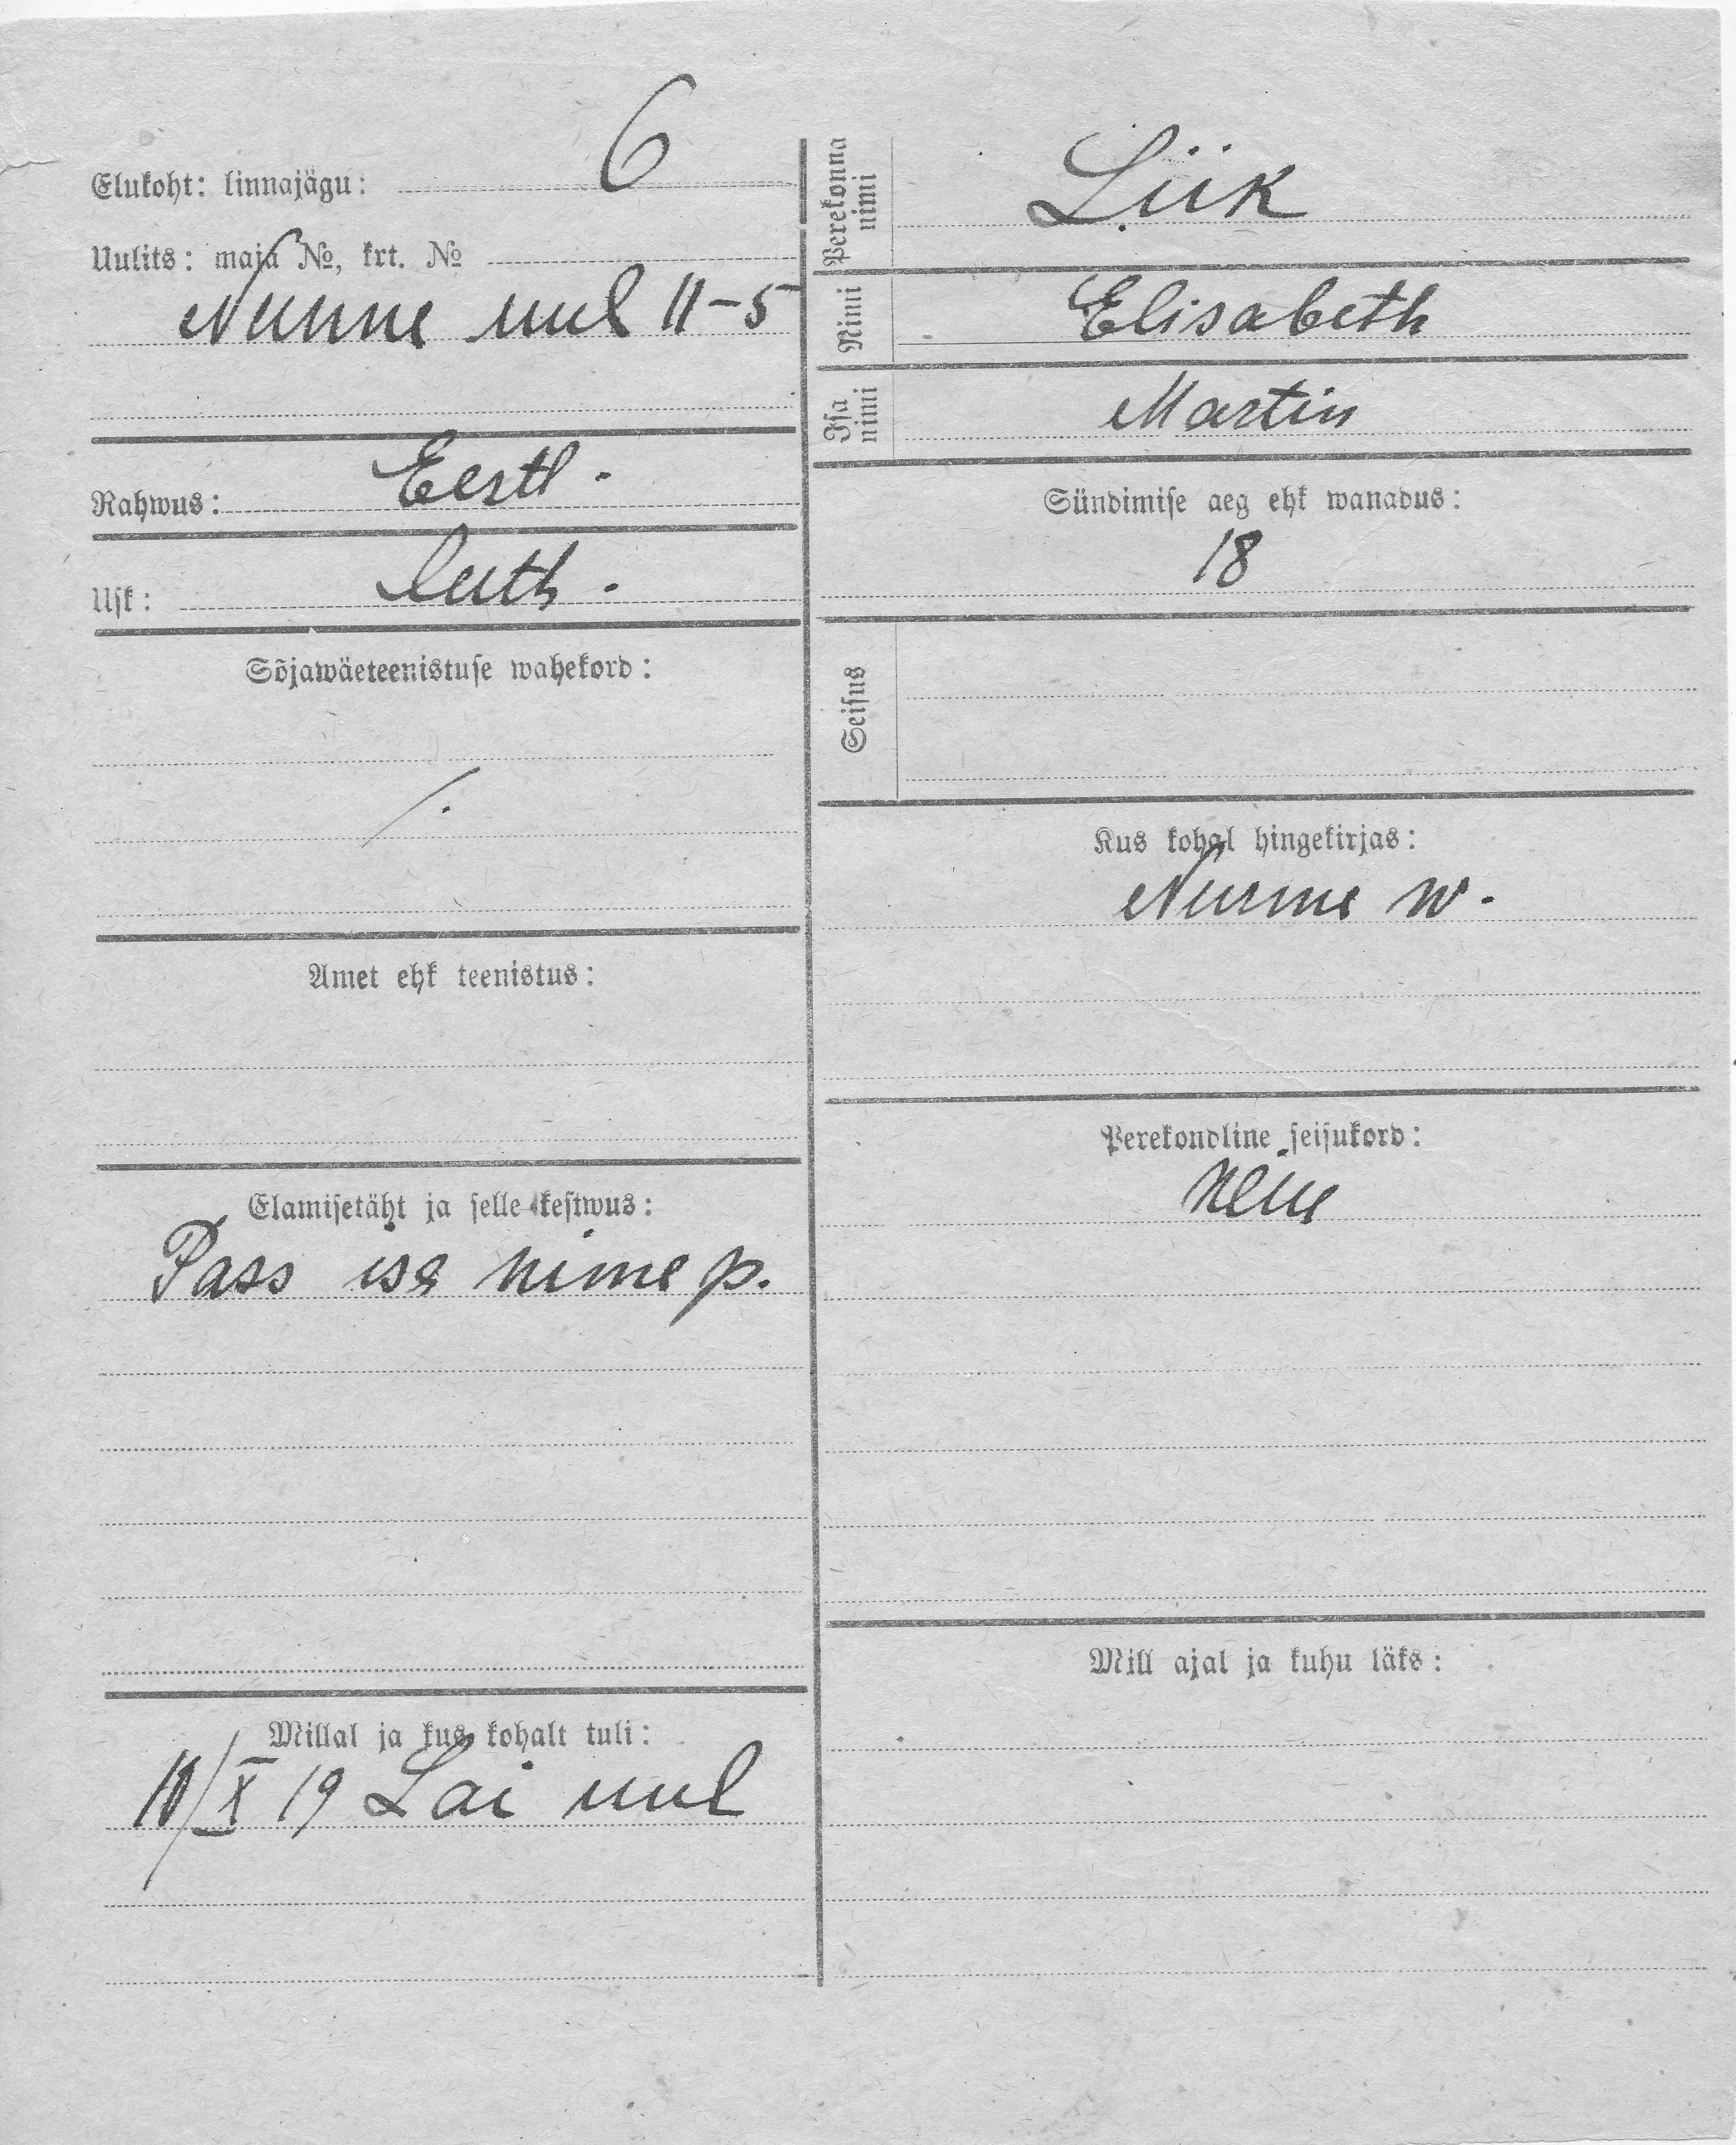 Elukoht: linnajagu: 6
Uulits: maja №, krt. №
Nunne uul 11-5
Rahwus: Eestl.
Usk: Luth.
Sõjawäeteenistuse wahekord:
/.
Amet ehk teenistus:
Elamisetäht ja selle kestwus:
Pass isa nime p.
Millal ja kus kohalt tuli:
10/X 19 Lai uul
Perekonna nimi Liik
Nimi Elisabeth
Isa nimi Martin
Sündimise aeg ehk wanadus:
18
Seisus
Kus kohal hingekirjas:
Nurme w.
Perekondline seisukord:
Neiu
Mill ajal ja kuhu läks: